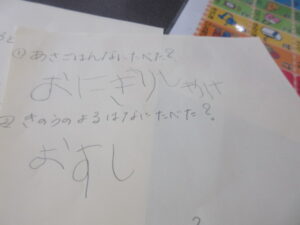 ① あさごはんなにたべた?
おにぎりしゃけ
② きのうのよるはなにたべた?
おすし